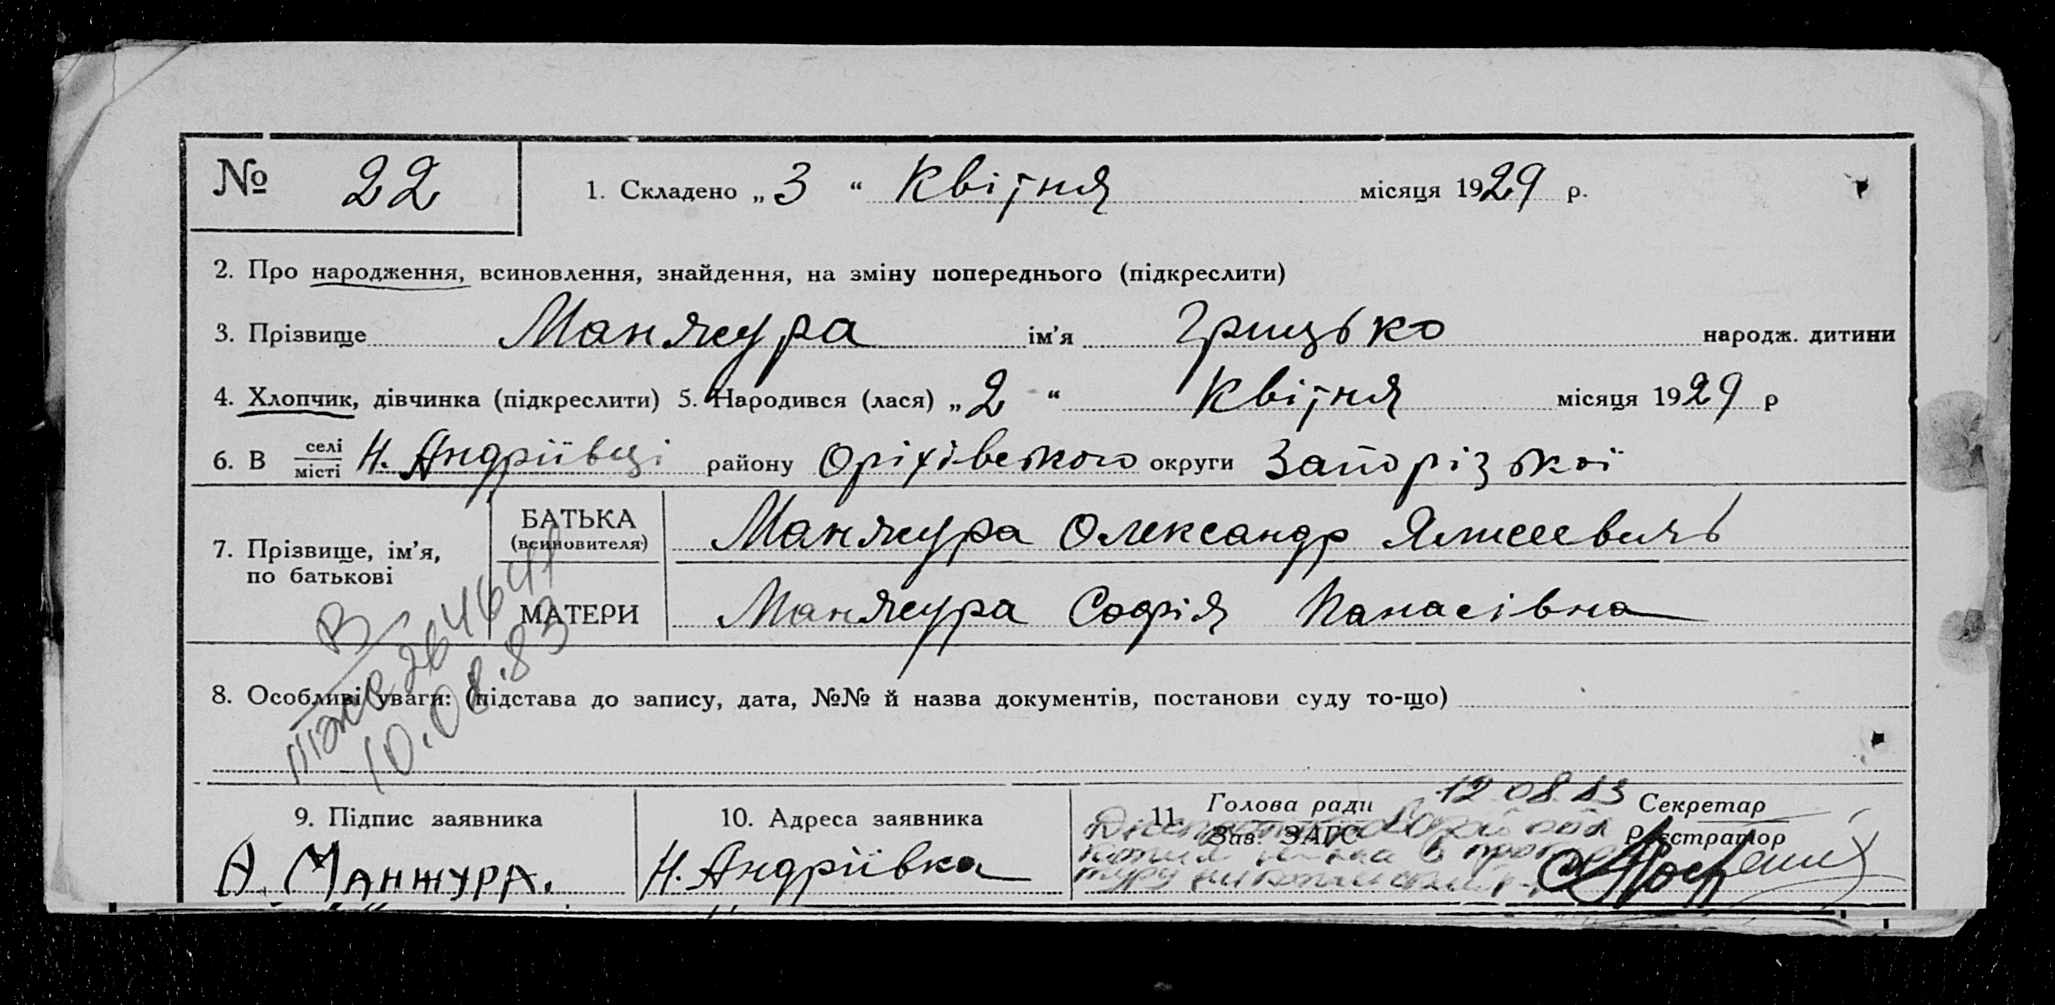 № 22 1. Складено „ 3 “ Квітня місяця 1929 р.
2. Про народження, всиновлення, знайдення, на зміну попереднього (підкреслити)
3. Прізвище Манжура ім'я Грицько народж. дитини
4. Хлопчик, дівчинка (підкреслити) 5. Народився (лася) „ 2 “ Квітня місяця 1929 р
6. В селі місті Н. Андріївці району Оріхівського округи Запорізької
7. Прізвище, ім'я, по батькові
БАТЬКА (всиновителя) Манжура Олександр
МАТЕРИ Манжура Софія Панасівна
8. Особливі уваги: (підстава до запису, дата, №№ й назва документів, постанови суду то-що)
10.08.83
9. Підпис заявника 10. Адреса заявника 11. Голова ради Зав. ЗАГС 12 08 83 Секретар Реєстратор
А. Манжура. Н. Андріївка